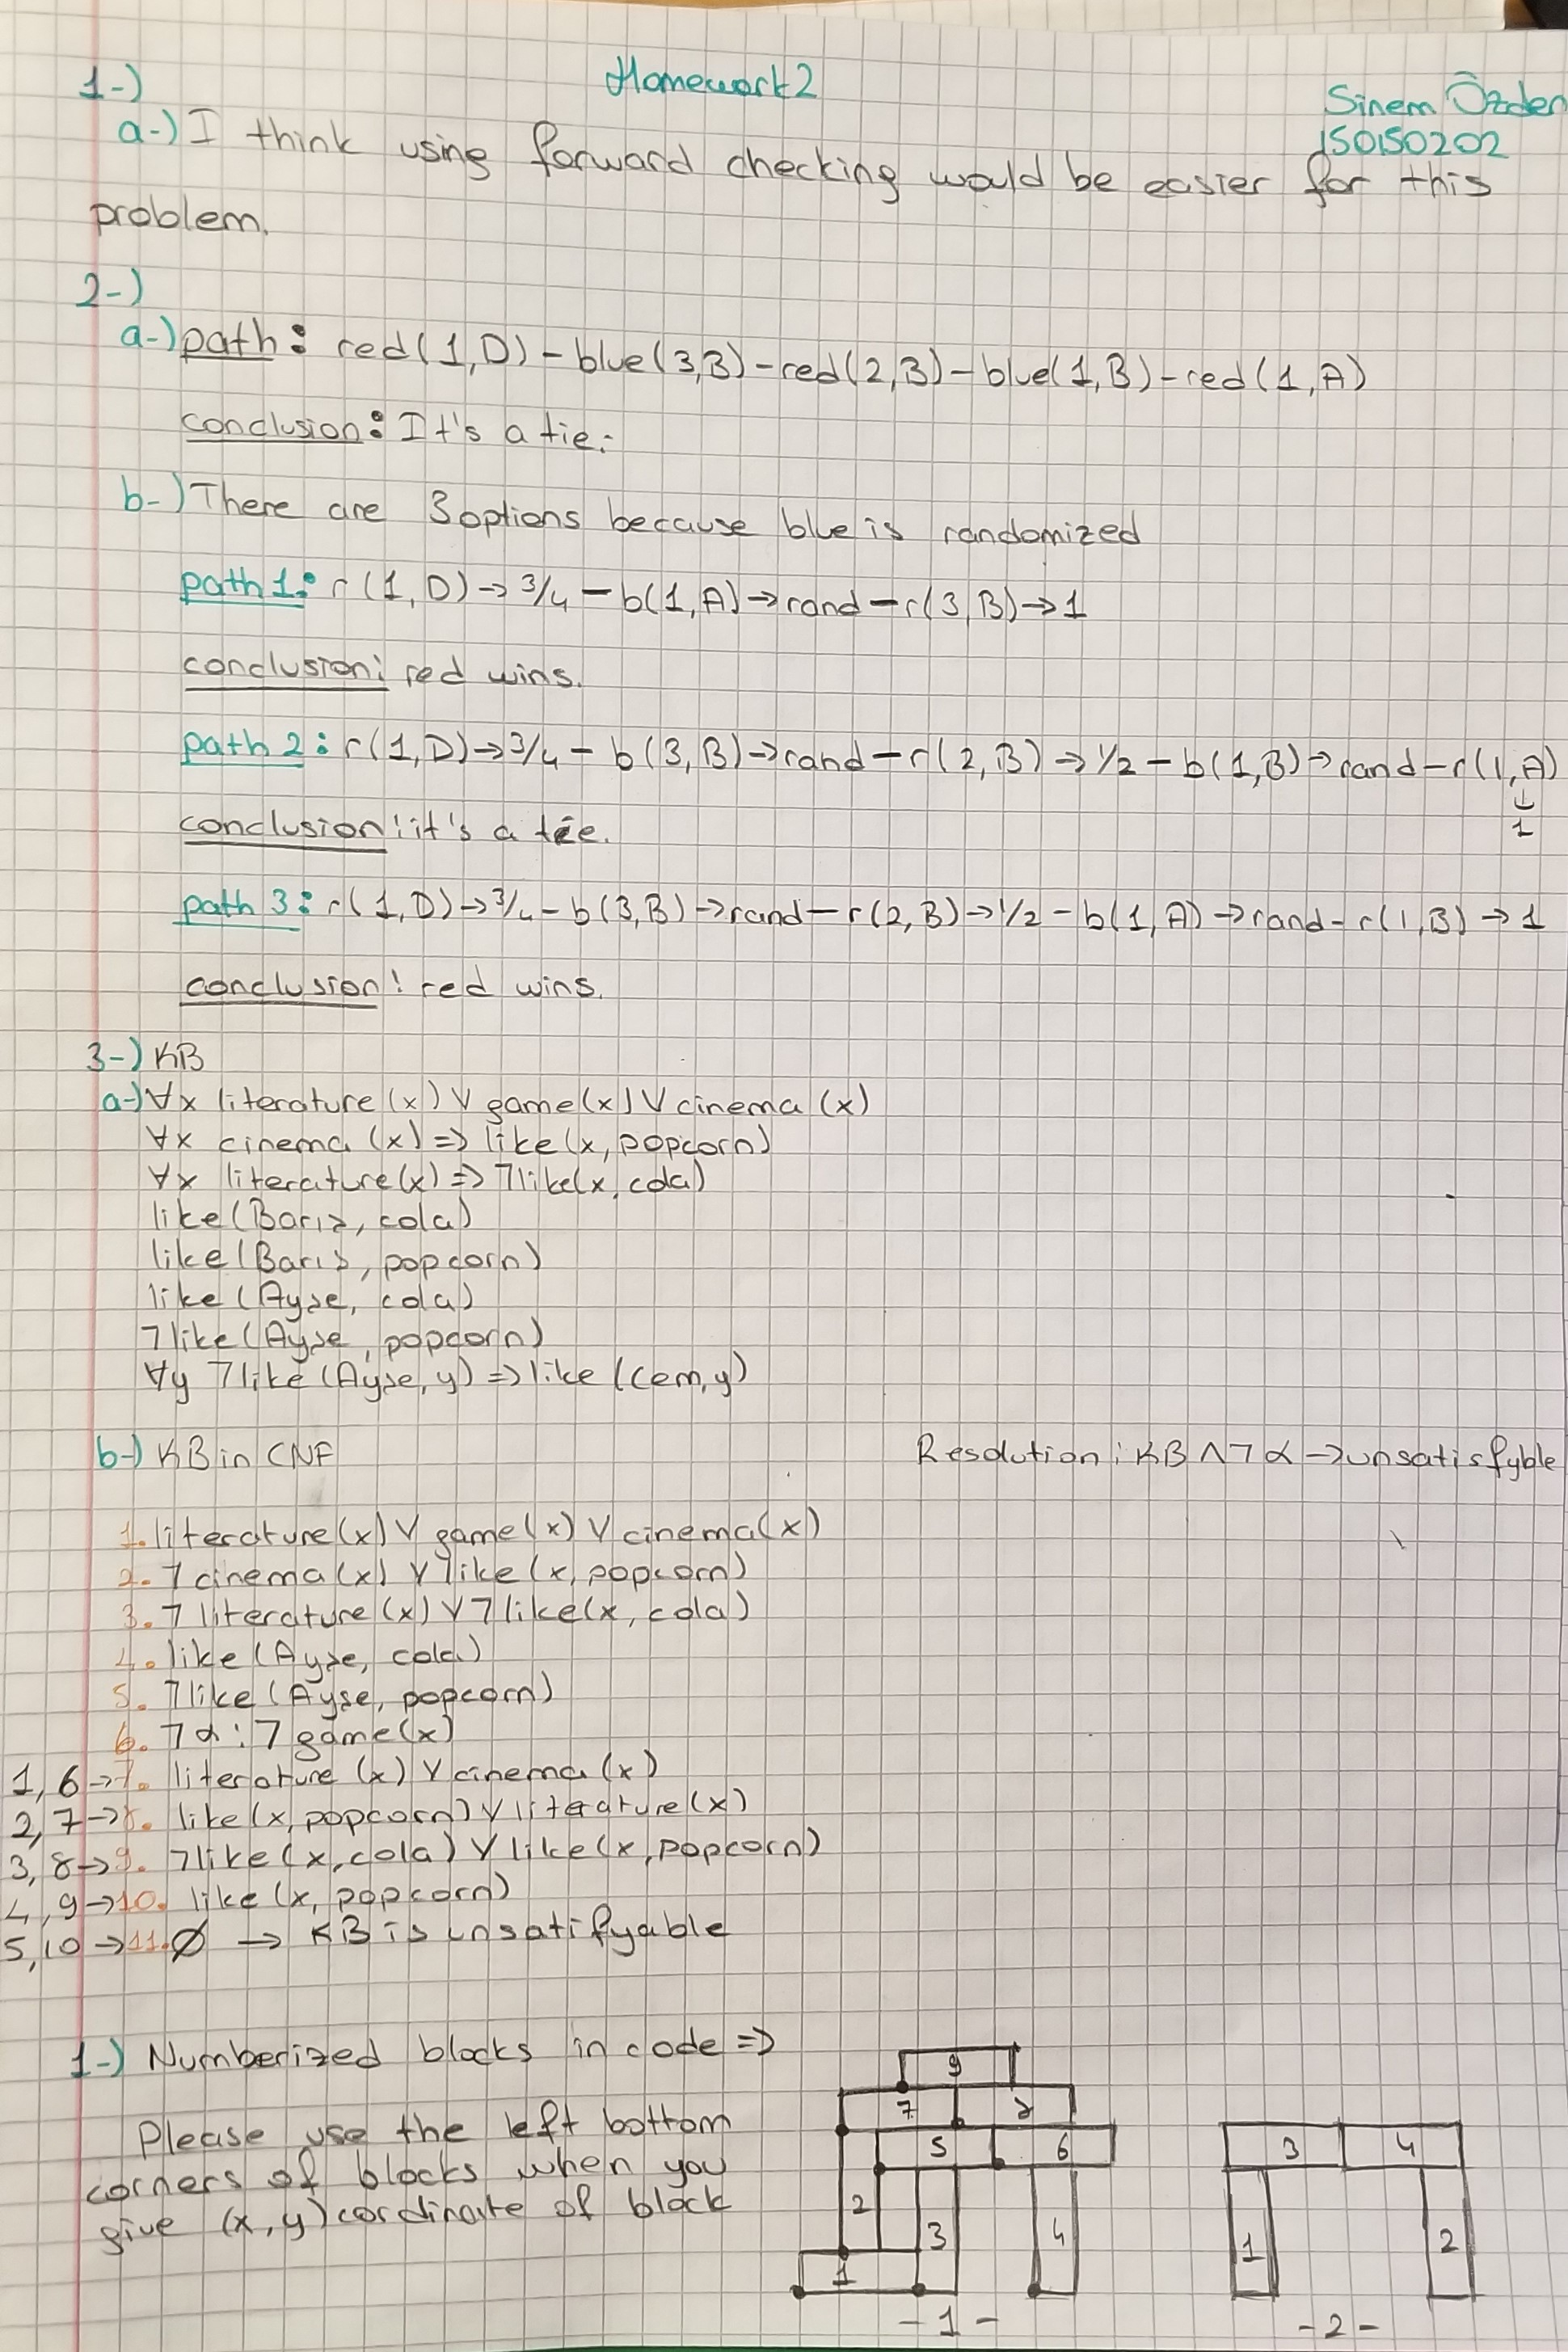 Homework 2
Sinem Özden
150150202
1-)
a-) I think using forward checking would be easier for this
problem.
2-)
a-) path: red(1,D) - blue(3,B) - red(2,B) - blue(1,B) - red(1,A)
conclusion: It's a tie.
b-) There are 3 options because blue is randomized
path 1: r(1,D) → 3/4 - b(1,A) → rand - r(3,B) → 1
conclusion: red wins.
path 2: r(1,D) → 3/4 - b(3,B) → rand - r(2,B) → 1/2 - b(1,B) → rand - r(1,A)
↓
1
conclusion: it's a tie.
path 3: r(1,D) → 3/4 - b(3,B) → rand - r(2,B) → 1/2 - b(1,A) → rand - r(1,B) → 1
conclusion: red wins.
3-) KB
a-) ∀x literature(x) V game(x) V cinema(x)
∀x cinema(x) => like(x, popcorn)
∀x literature(x) => ㄱlike(x, cola)
like(Barış, cola)
like(Barış, popcorn)
like(Ayşe, cola)
ㄱlike(Ayşe, popcorn)
∀y ㄱlike(Ayşe, y) => like(Cem, y)
b-) KB in CNF
Resolution: KB ∧ ㄱα → unsatisfyble
1. literature(x) V game(x) V cinema(x)
2. ㄱcinema(x) V like(x, popcorn)
3. ㄱliterature(x) V ㄱlike(x, cola)
4. like(Ayşe, cola)
5. ㄱlike(Ayşe, popcorn)
6. ㄱα: ㄱgame(x)
1, 6 → 7. literature(x) V cinema(x)
2, 7 → 8. like(x, popcorn) V literature(x)
3, 8 → 9. ㄱlike(x, cola) V like(x, popcorn)
4, 9 → 10. like(x, popcorn)
5, 10 → 11. Ø → KB is unsatifyable
1-) Numberized blocks in code =>
Please use the left bottom
corners of blocks when you
give (x, y) cordinate of block
9
7 8
5 6
3 4
2 3 4
1 2
1
-1-
-2-